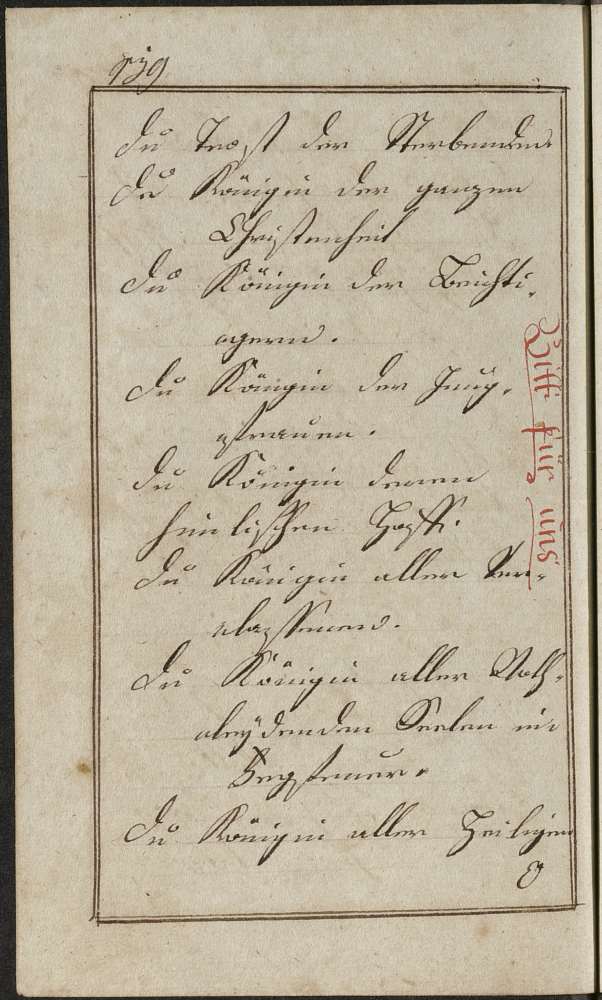 139
du Trost der Sterbenden
du Königin der ganzen
Christenheit
du Königin der Beichti-
gern.
du Königin der Jung-
frauen.
du Königin
himlischen
du Königin aller Ver-
lassenen.
du Königin aller Noth-
leydenden Seelen in
Fegfeuer.
du Königin aller Heiligen
O
Bitt für uns